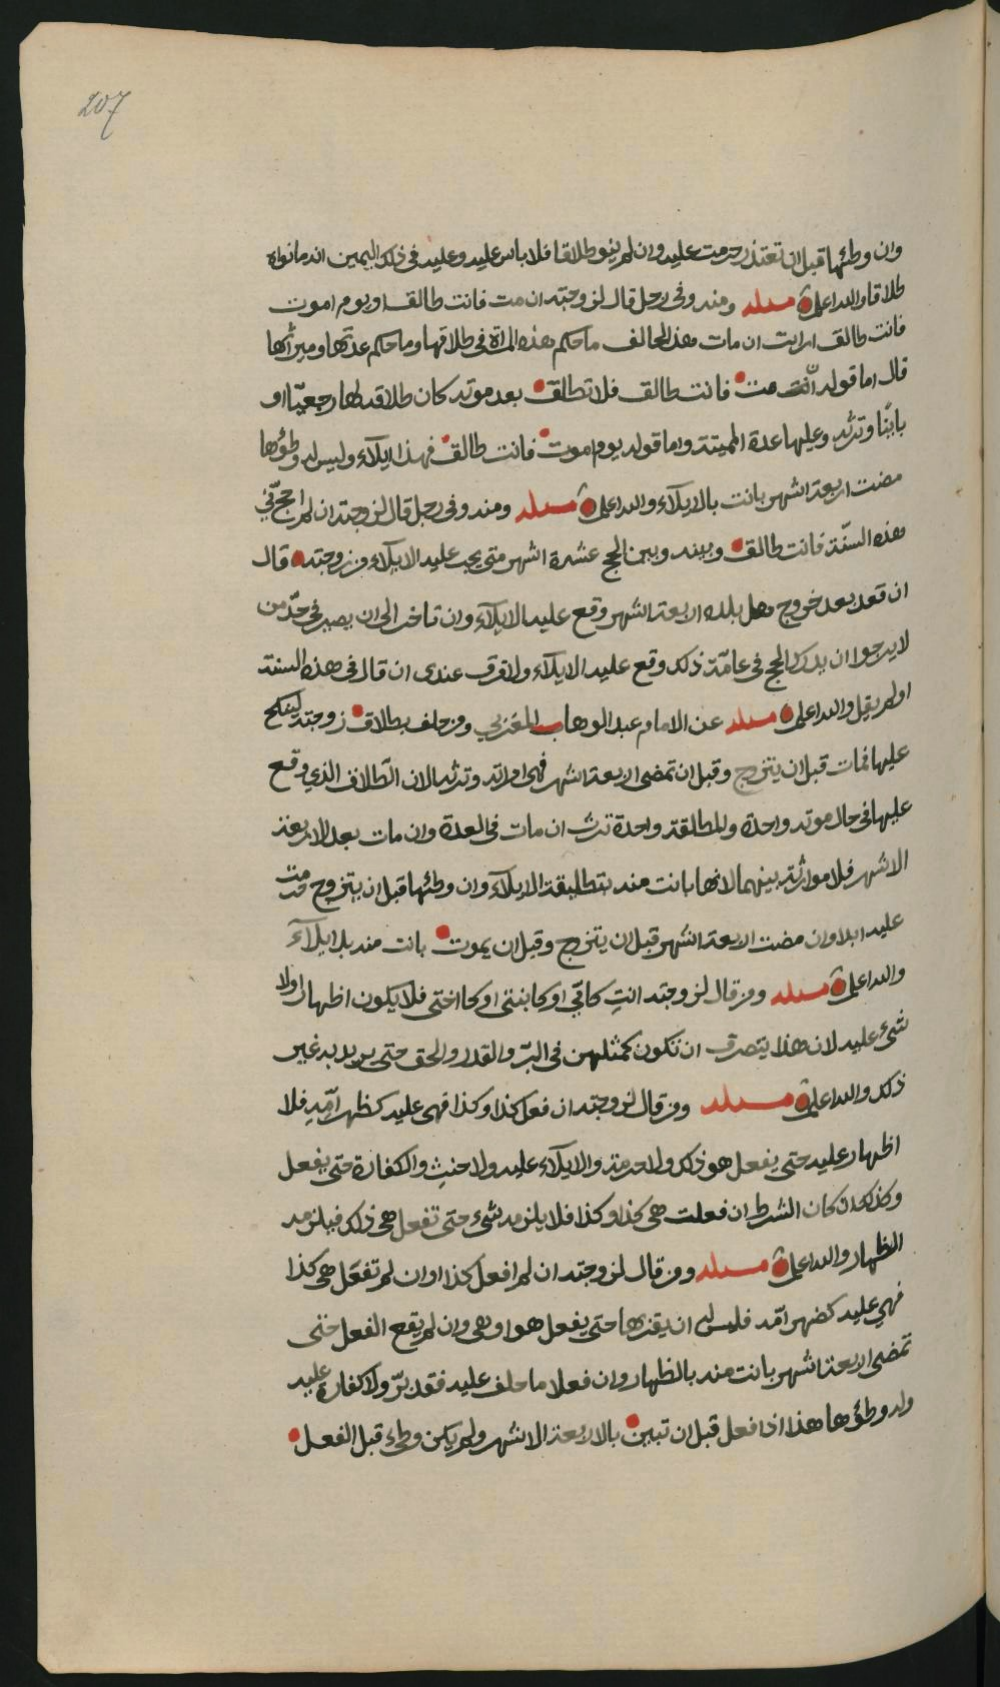 207
وان وطئها قبل ان تعتذر حرمت عليه وان لم ينو طلاقا فلا باس عليه وعليه في ذلك اليمين انه ما نواه
طلاقا والله اعلم مسئلة ومنه وفي رجل قال لزوجته ان مت فانت طالق او يوم اموت
فانت طالق ارايت ان مات هذا الحالف ما حكم هذه المراة في طلاقها وما حكم عدتها وميراثها
قال اما قوله ان مت فانت طالق فلا تطالق بعد موته كان طلاقه لها رجعيّا او
باينًا وترثه وعليها عدة المميتة واما قوله يوم اموت فانت طالق فهذا ايلآء وليس له وطؤها
مضت اربعة اشهر بانت بالايلآء والله اعلم مسئلة ومنه وفي رجل قال لزوجته ان لم احج في
هذه السنّة فانت طالق وبينه وبين الحج عشرة اشهر متى يجب عليه الايلآء من زوجته قال
ان قعد بعد خروج اهل بلده اربعة اشهر وقع عليه الايلآء وان تاخر الى ان يصير في حدّ من
لا يرجوا ان يدرك الحج في عامّة ذلك وقع عليه الايلآء ولا فرق عندي ان قال في هذه السنة
اولم يقل والله اعلم مسئلة عن الامام عبد الوهاب المغربي ومن حلف بطلاق زوجته لينكح
عليها فمات قبل ان يتزوج وقبل ان تمضي اربعة اشهر فهي امراته وترثه لان الطلاق الذي وقع
عليها في حال موته واحدة والمطلقة واحدة ترث ان مات في العدة وان مات بعد الاربعة
الاشهر فلا موارثة بينهما لانها بانت منه بتطليقة الايلآء وان وطئها قبل ان يتزوج حرمت
عليه ابدا وان مضت اربعة اشهر قبل ان يتزوج وقبل ان يموت بانت منه بلا ايلآء
والله اعلم مسئلة ومن قال لزوجته انتِ كامّي او كابنتي او كااختي فلا يكون اظهارا ولا
شيء عليه لان هذا يتصرف ان تكون كمثلهن في البرّ والقدر والحق حتى يريد به غير
ذلك والله اعلم مسئلة ومن قال لزوجته ان فعل كذا وكذا فهي عليه كظهر امّه فلا
اظهار عليه حتى يفعل هو ذلك ولا حرمة ولا ايلآء عليه ولا حنث ولا كفارة حتى يفعل
وكذلك ان كان الشرط ان فعلت هي كذا وكذا فلا يلزمه شيء حتى تفعل هي ذلك فيلزمه
الظهار والله اعلم مسئلة ومن قال لزوجته ان لم افعل كذا او ان لم تفعل هي كذا
فهي عليه كضهر امّه فليس له ان يقربها حتى يفعل هو او هي وان لم يقع الفعل حتى
تمضي اربعة اشهر بانت منه بالظهار وان فعلا ما حلف عليه فقد برّ ولا كفارة عليه
وله وطؤها هذا اذا فعل قبل ان تبين بالاربعة الاشهر ولم يكن وطيء قبل الفعل